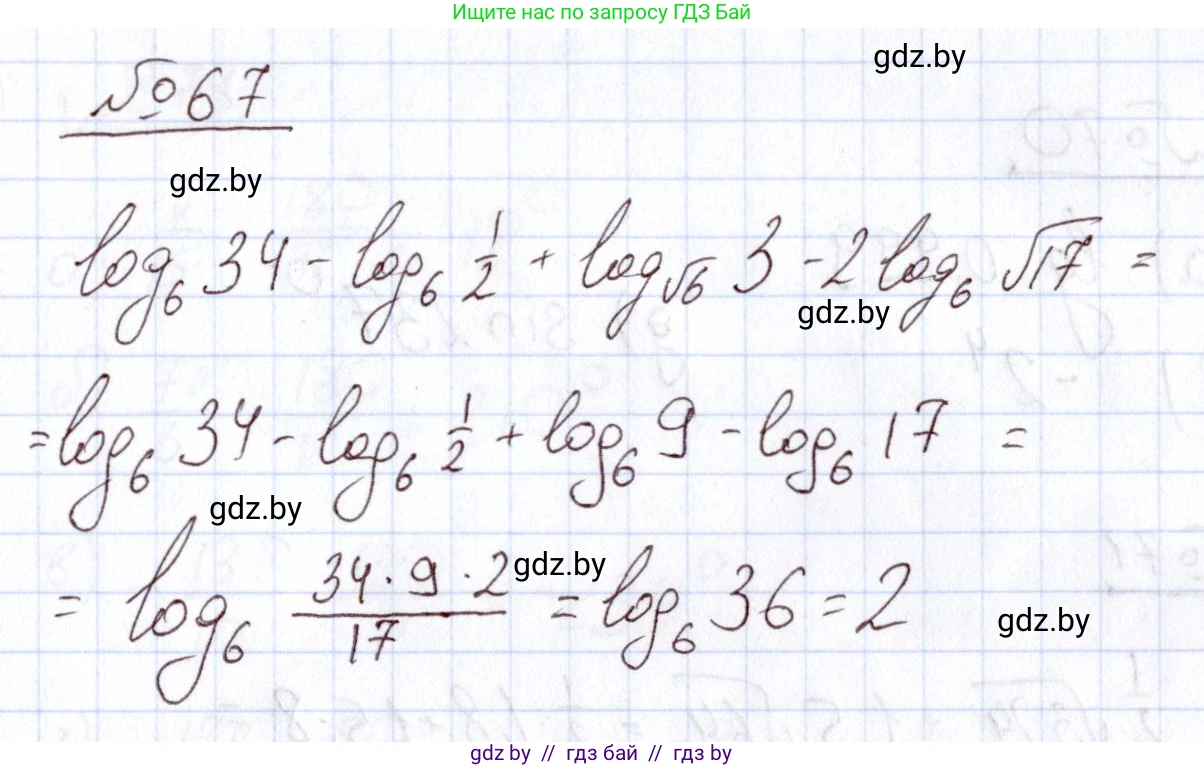 Ищите нас по запросу ГДЗ Бай
gdz.by
№ 67
gdz.by
log₆ 34 - log₆ 1/2 + log_√6 3 - 2 log₆ √17 =
gdz.by
= log₆ 34 - log₆ 1/2 + log₆ 9 - log₆ 17 =
gdz.by
= log₆ (34 · 9 · 2)/17 = log₆ 36 = 2
gdz.by
gdz.by
gdz.by // гдз бай // гдз by